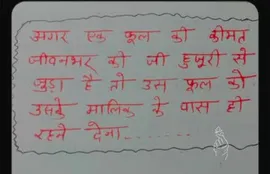 अगर एक फूल की कीमत
जीवनभर की जी हुजूरी से
जुड़ा है तो उस फूल को
उसके मालिक के पास ही
रहने देना........